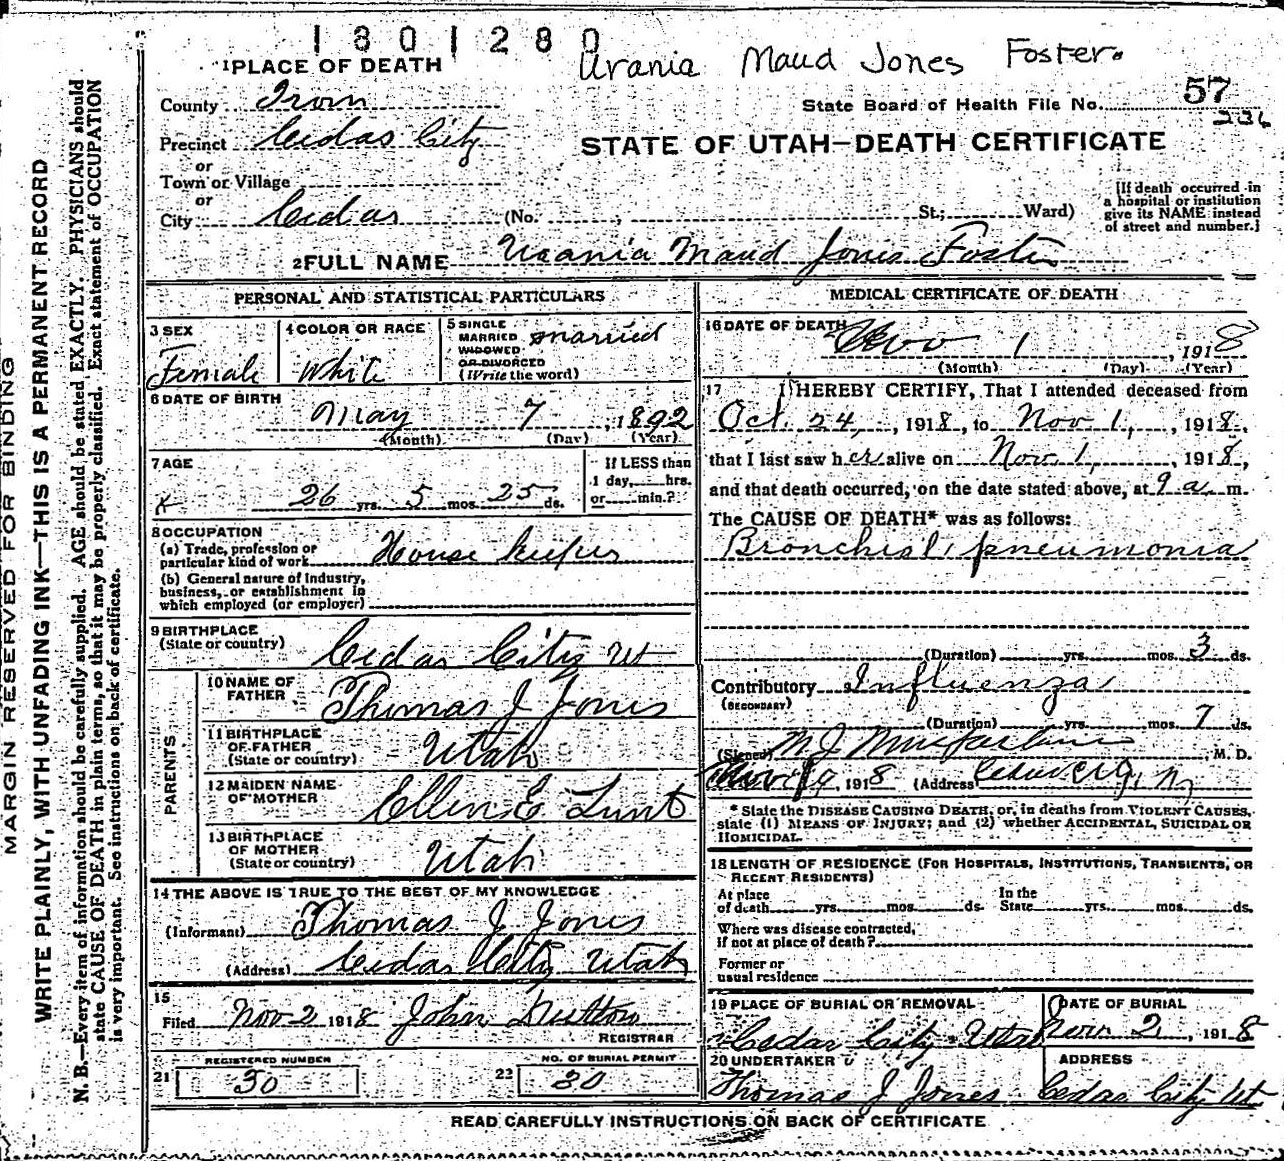 1801280
Urania Maud Jones Foster.
1 PLACE OF DEATH
County Iron
State Board of Health File No. 57
236
Precinct Cedar City
STATE OF UTAH—DEATH CERTIFICATE
or
Town or Village
or
City Cedar (No. , St.; Ward)
[If death occurred in a hospital or institution give its NAME instead of street and number.]
2 FULL NAME Urania Maud Jones Foster
PERSONAL AND STATISTICAL PARTICULARS
3 SEX Female
4 COLOR OR RACE White
5 SINGLE MARRIED WIDOWED OR DIVORCED (Write the word) married
6 DATE OF BIRTH May 7, 1892
(Month) (Day) (Year)
7 AGE 26 yrs. 5 mos. 25 ds.
If LESS than 1 day, hrs. or min.?
8 OCCUPATION
(a) Trade, profession or particular kind of work House keeper
(b) General nature of industry, business, or establishment in which employed (or employer)
9 BIRTHPLACE (State or country) Cedar City Ut
PARENTS
10 NAME OF FATHER Thomas J Jones
11 BIRTHPLACE OF FATHER (State or country) Utah
12 MAIDEN NAME OF MOTHER Ellen E Lunt
13 BIRTHPLACE OF MOTHER (State or country) Utah
14 THE ABOVE IS TRUE TO THE BEST OF MY KNOWLEDGE
(Informant) Thomas J Jones
(Address) Cedar City Utah
15
Filed Nov 2 1918 John
REGISTRAR
REGISTERED NUMBER
21 30
NO. OF BURIAL PERMIT
22 30
MEDICAL CERTIFICATE OF DEATH
16 DATE OF DEATH Nov 1, 1918
(Month) (Day) (Year)
17 I HEREBY CERTIFY, That I attended deceased from
Oct. 24, 1918, to Nov 1, 1918,
that I last saw her alive on Nov 1, 1918,
and that death occurred, on the date stated above, at 9 a m.
The CAUSE OF DEATH* was as follows:
Bronchial pneumonia
(Duration) yrs. mos. 3 ds.
Contributory Influenza
(SECONDARY)
(Duration) yrs. mos. 7 ds.
(Signed) M J Macfarlane, M. D.
1918 (Address) Cedar City,
* State the DISEASE CAUSING DEATH, or, in deaths from VIOLENT CAUSES,
state (1) MEANS OF INJURY; and (2) whether ACCIDENTAL, SUICIDAL OR
HOMICIDAL.
18 LENGTH OF RESIDENCE (FOR HOSPITALS, INSTITUTIONS, TRANSIENTS, OR
RECENT RESIDENTS)
At place of death yrs. mos. ds. In the State yrs. mos. ds.
Where was disease contracted,
if not at place of death?
Former or
usual residence
19 PLACE OF BURIAL OR REMOVAL Cedar City Utah
DATE OF BURIAL Nov 2, 1918
20 UNDERTAKER Thomas J Jones
ADDRESS Cedar City Ut
READ CAREFULLY INSTRUCTIONS ON BACK OF CERTIFICATE
MARGIN RESERVED FOR BINDING
WRITE PLAINLY, WITH UNFADING INK—THIS IS A PERMANENT RECORD
N. B.—Every item of information should be carefully supplied. AGE should be stated EXACTLY. PHYSICIANS should
state CAUSE OF DEATH in plain terms, so that it may be properly classified. Exact statement of OCCUPATION
is very important. See instructions on back of certificate.